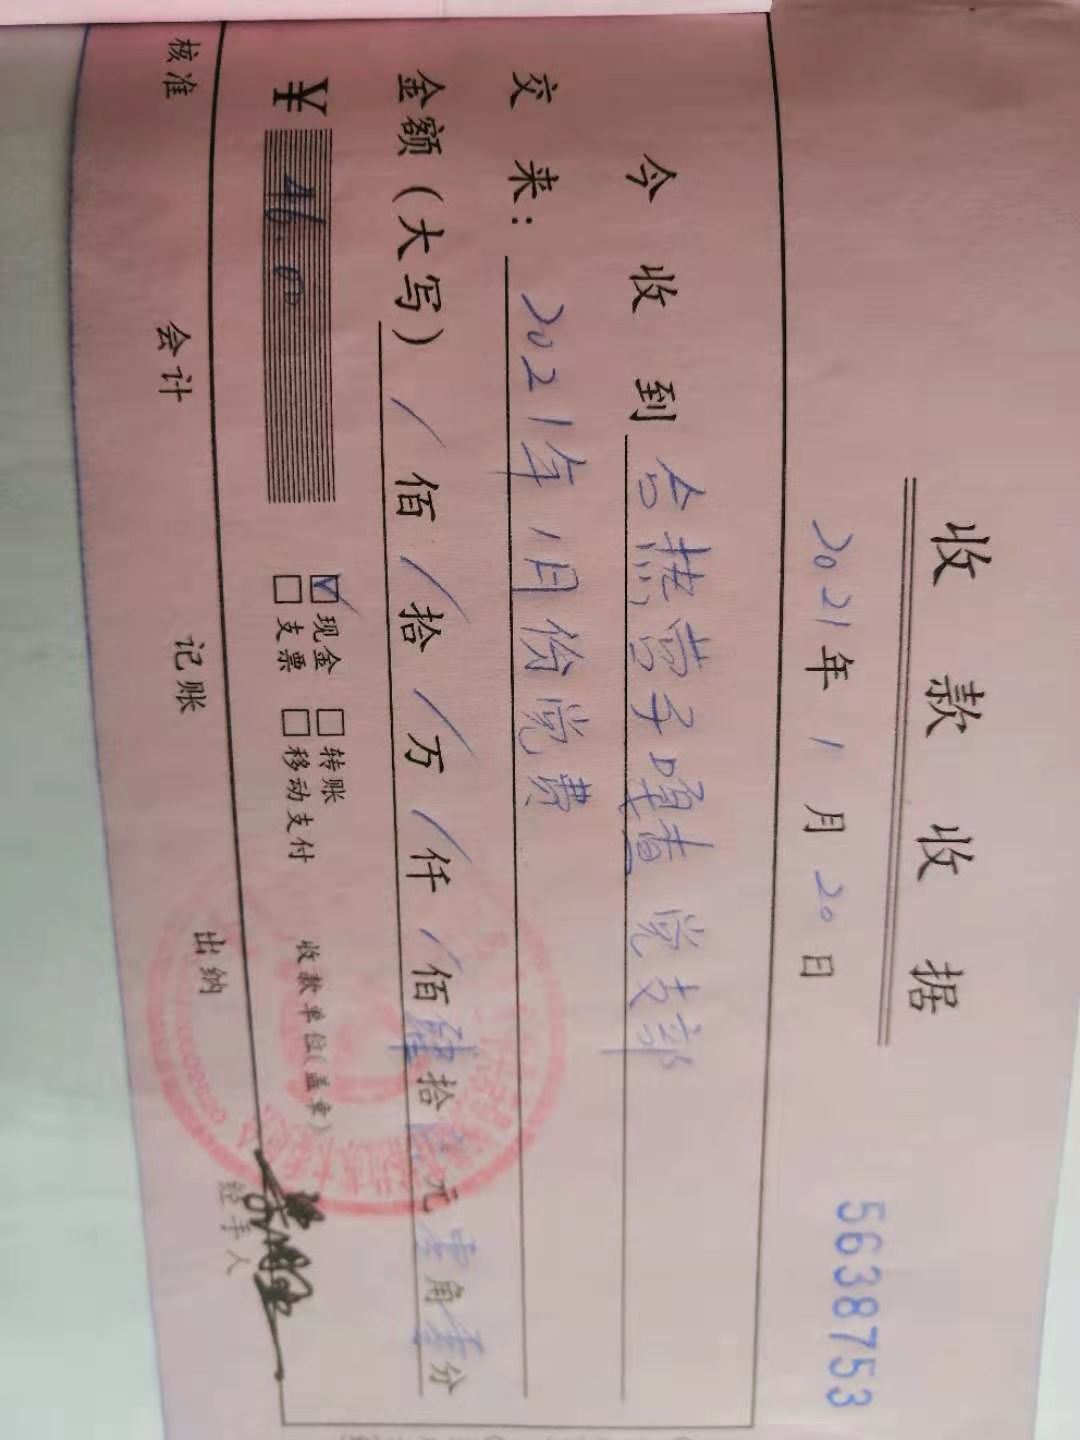 收款收据
2021年1月20日
5638753
今收到
党支部
交来：2021年1月份党费
金额（大写）/佰/拾/万/仟/佰肆拾陆元零角零分
¥ 46.00
☑现金 □转账
□支票 □移动支付
收款单位（盖章）
核准 会计 记账 出纳 经手人